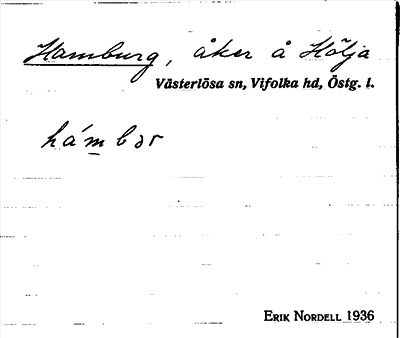 Hamburg, åker å Hölja
Västerlösa sn, Vifolka hd, Östg. l.
hámbər
ERIK NORDELL 1936